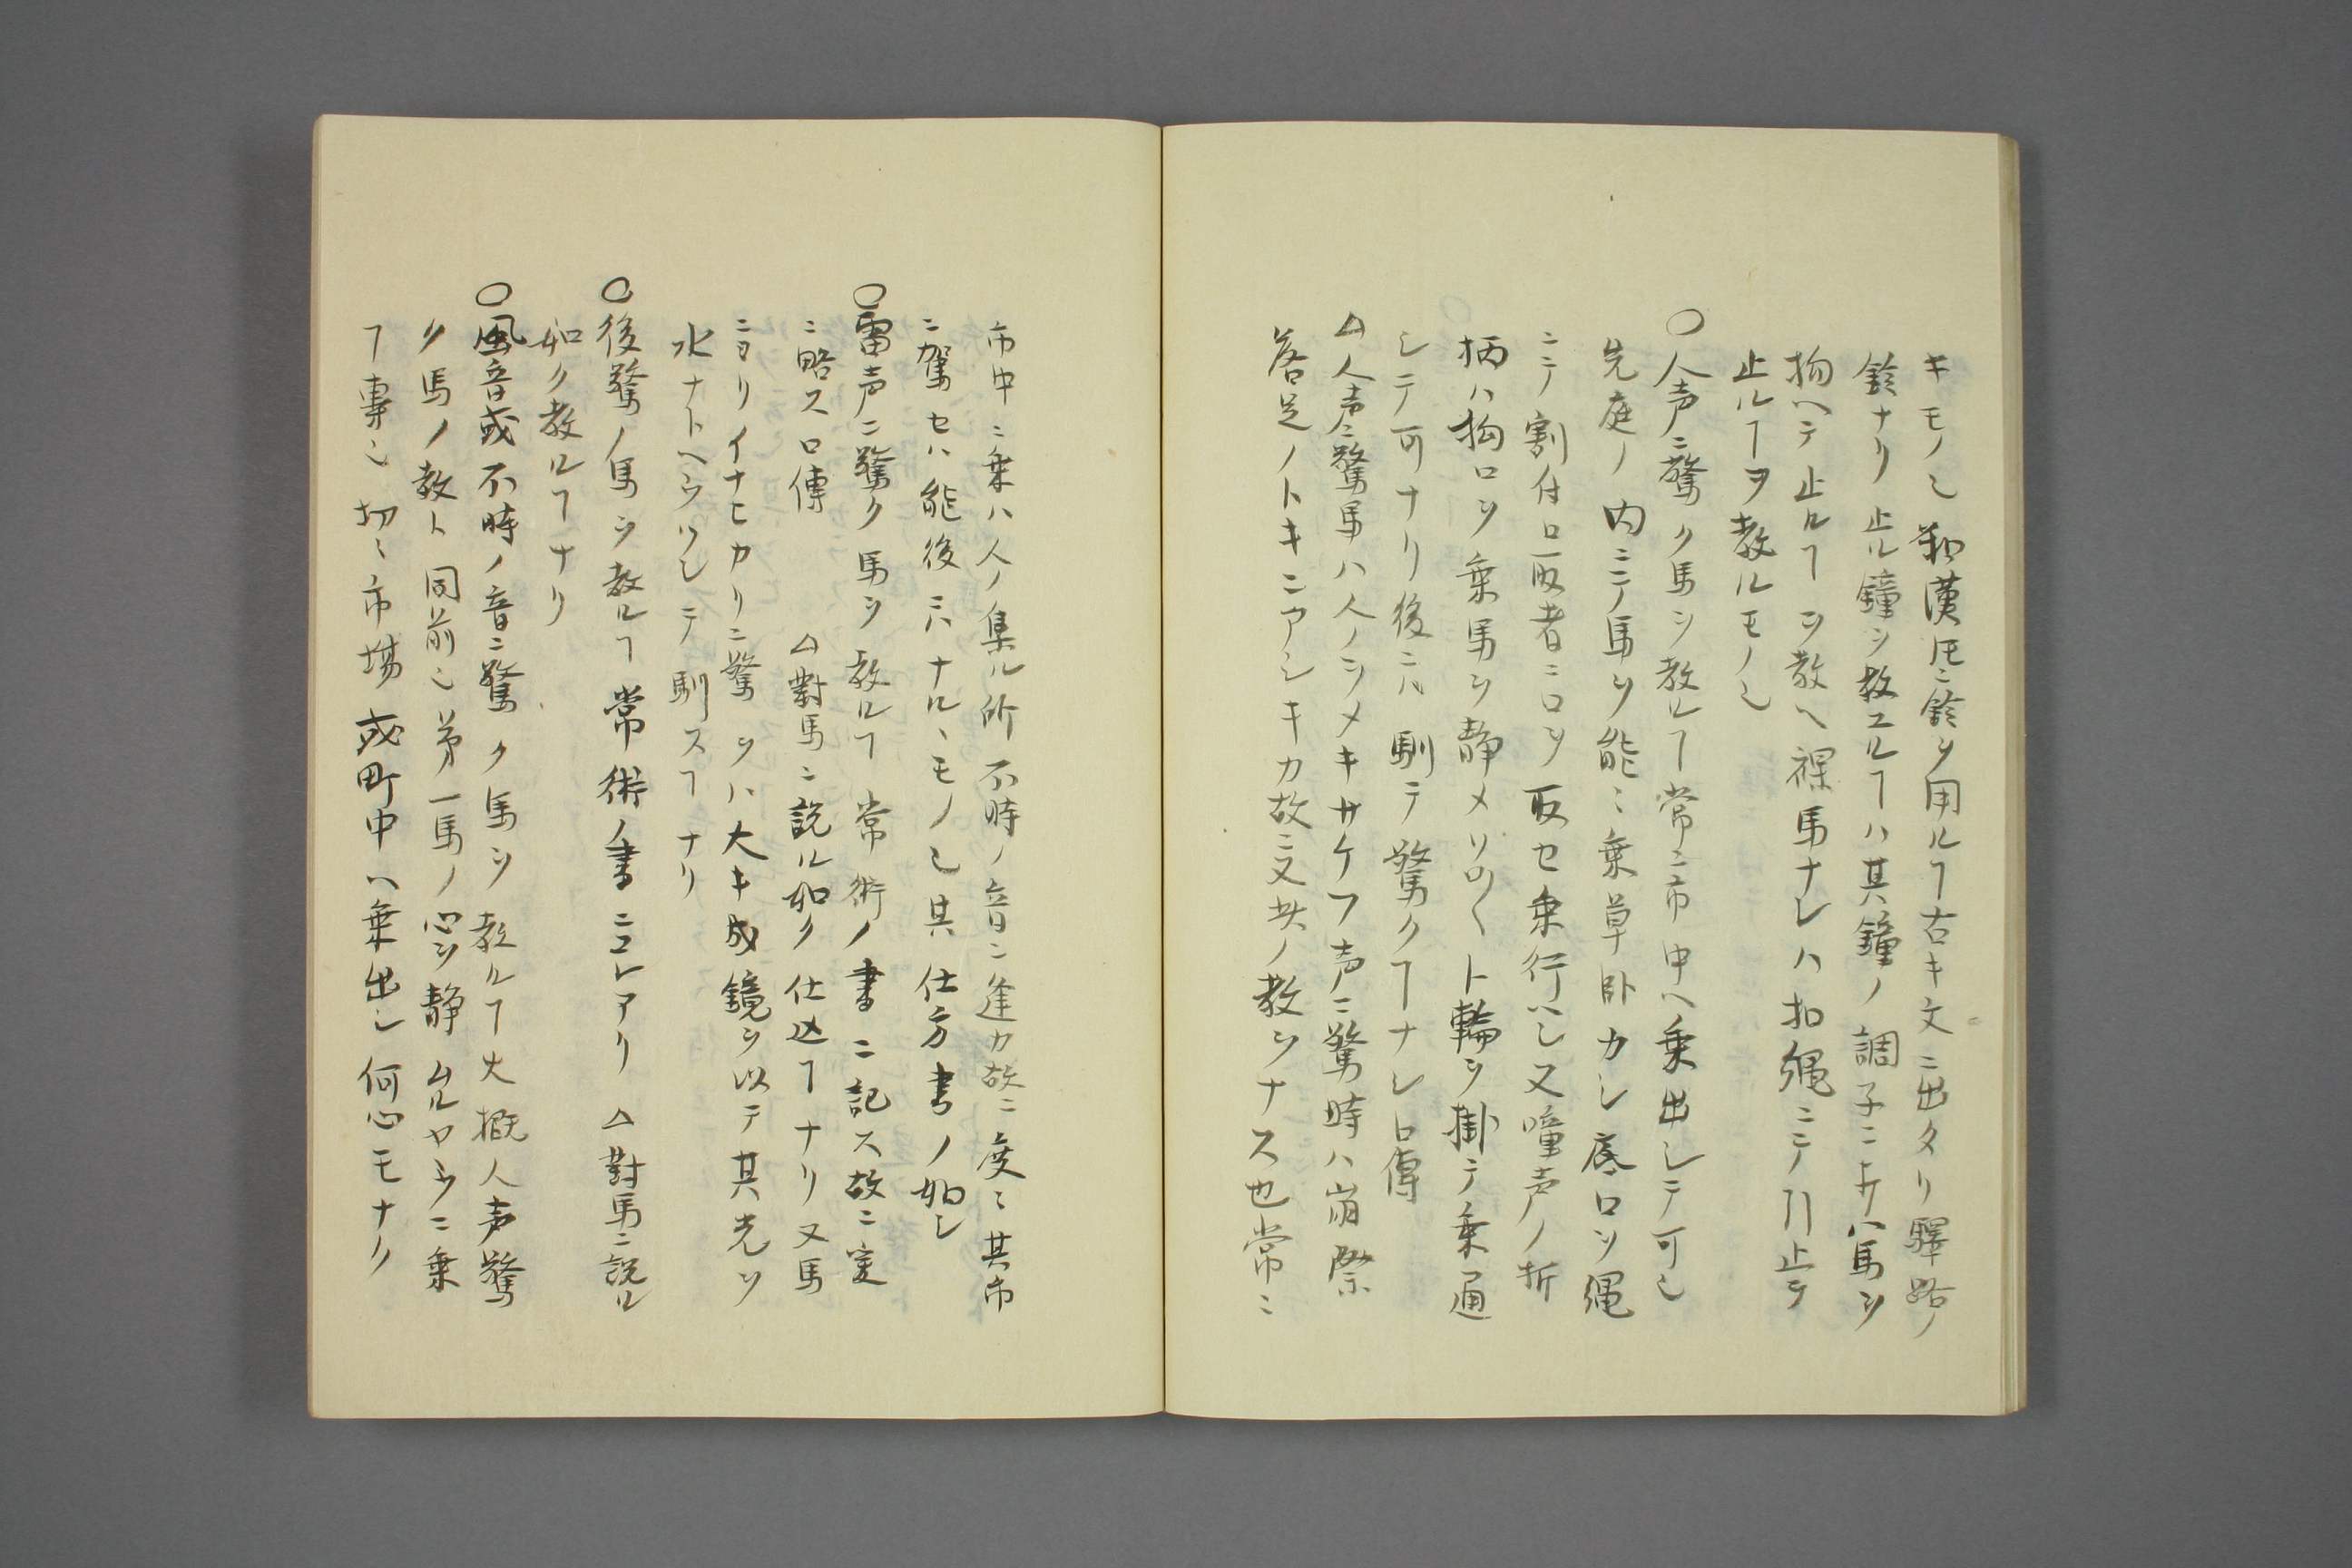 キモノ也和漢𪜈ニ鈴ヲ用ルヿ古キ文ニ出タリ驛路ノ
鈴ナリ止ル鐘ヲ教エルヿハ其鐘ノ調子ニ中ハ馬ヲ
拘ヘテ止ルヿヲ教ヘ裸馬ナレハ扣縄ニテ引止テ
止ルヿヲ教ルモノ也
〇人声ニ驚ク馬ヲ教ルヿ常ニ市中ヘ乗出シテ可也
先庭ノ内ニテ馬ヲ能ミ乗草臥カシ底口ヲ縄
ニテ割付口取者ニ口ヲ取セ乗行ヘシ又噇声ノ折
柄ハ拘口ヲ乗馬ヲ静メソロ〱ト輪ヲ掛テ乗通
シテ可ナリ後ニハ馴テ驚クヿナシ口傳
△人声ニ驚馬ハ人ノヲメキサケフ声ニ驚時ハ崩際
落足ノトキニアシキカ故ニ又其ノ教ヲナス也常ニ
市中ニ乗ハ人ノ集ル所不時ノ音ニ逢カ故ニ度ミ其市
ニ駕セハ能後ニハナルヽモノ也其仕方書ノ如シ
〇雷声ニ驚ク馬ヲ教ルヿ常術ノ書ニ記ス故ニ爰
ニ略ス口傳　△對馬ニ説ル如ク仕込ヿナリ又馬
ニヨリイナヒカリニ驚ヲハ大キ成鏡ヲ以テ其光ヲ
水ナトヘウツシテ馴スヿナリ
〇後驚ノ馬ヲ教ルヿ常術ノ書ニコレアリ△對馬ニ説ル
如ク教ルヿナリ
〇風音或不時ノ音ニ驚ク馬ヲ教ルヿ大概人声驚
ク馬ノ教ト同前也第一馬ノ心ヲ静ムルヤウニ乗
ヿ専也切ミ市場或町中ヘ乗出シ何心モナク